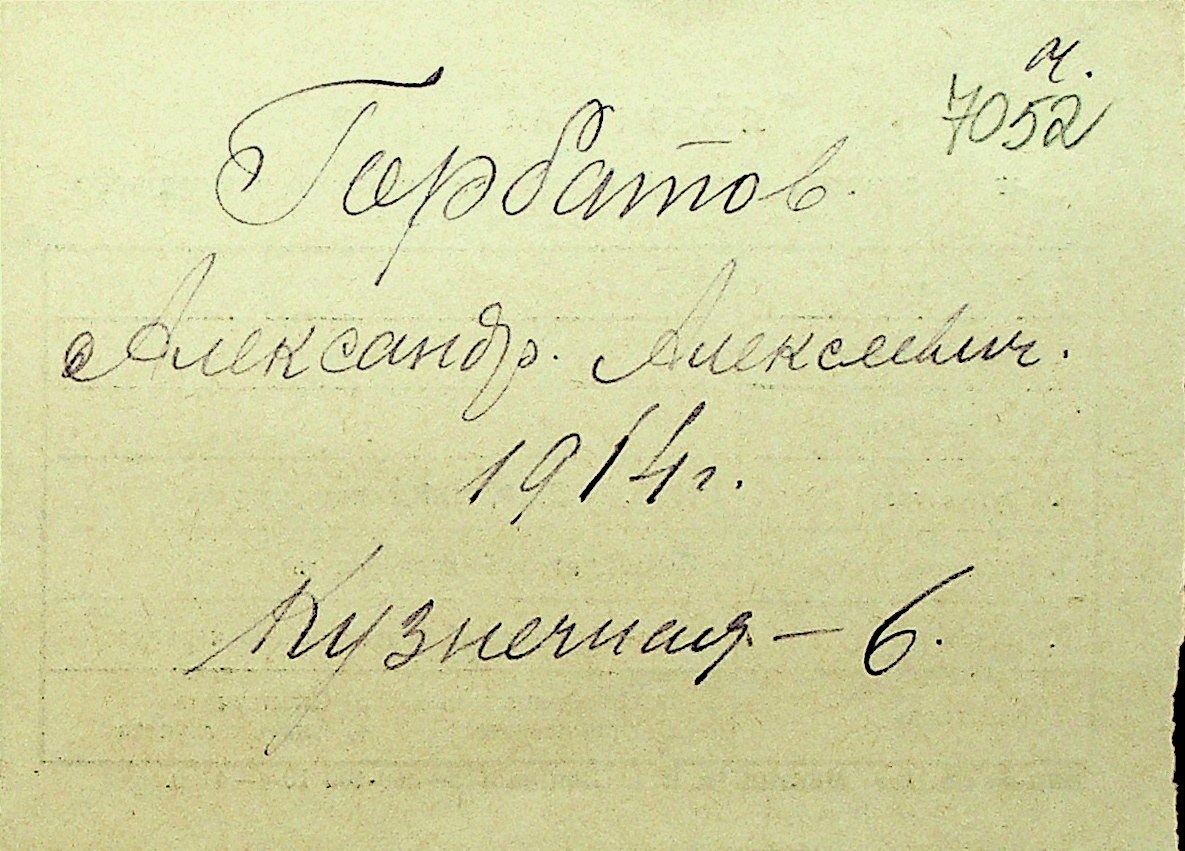 ч.
7052
Горбатов
Александр. Алексеевич.
1914г.
Кузнечная – 6.